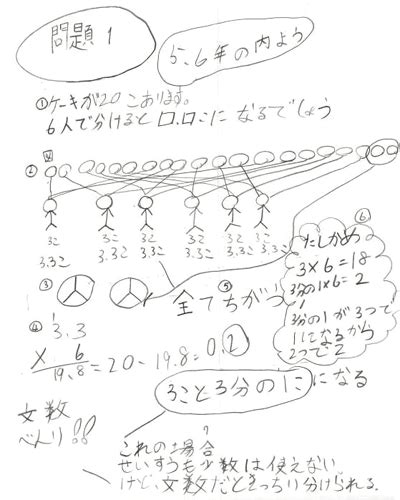 問題1
5、6年の内よう
①ケーキが20こあります。
6人で分けると□.□こになるでしょう
②
3こ 3こ 3こ 3こ 3こ 3こ
3.3こ 3.3こ 3.3こ 3.3こ 3.3こ 3.3こ
③
⑤
全てちがう
⑥
たしかめ
3×6=18
3分の1×6=2
3分の1が3つで
1になるから
2つで2
④
3.3
× 6
19.8 =20-19.8=0.2
3こと3分の1こになる
文数
べんり!!
これの場合
せいすうも少数は使えない
けど、文数だときっちり分けられる。